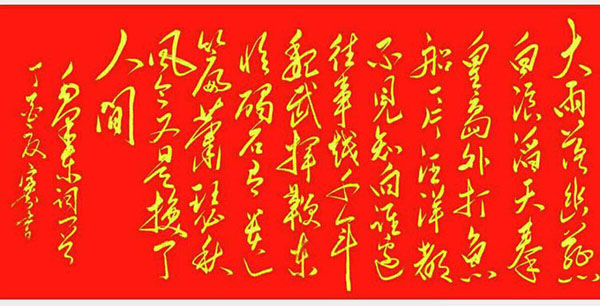 大雨落幽燕
白浪滔天秦
皇岛外打鱼
船一片汪洋都
不见知向谁边
往事越千年
魏武挥鞭东
临碣石有遗
篇萧瑟秋
风今又是换了
人间
毛泽东词一首
丁夏书